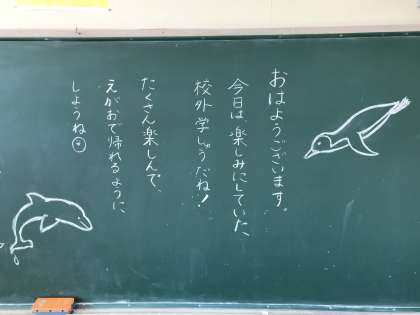 おはようございます。
今日は、楽しみにしていた、
校外学しゅうだね！
たくさん楽しんで、
えがおで帰れるように
しようね